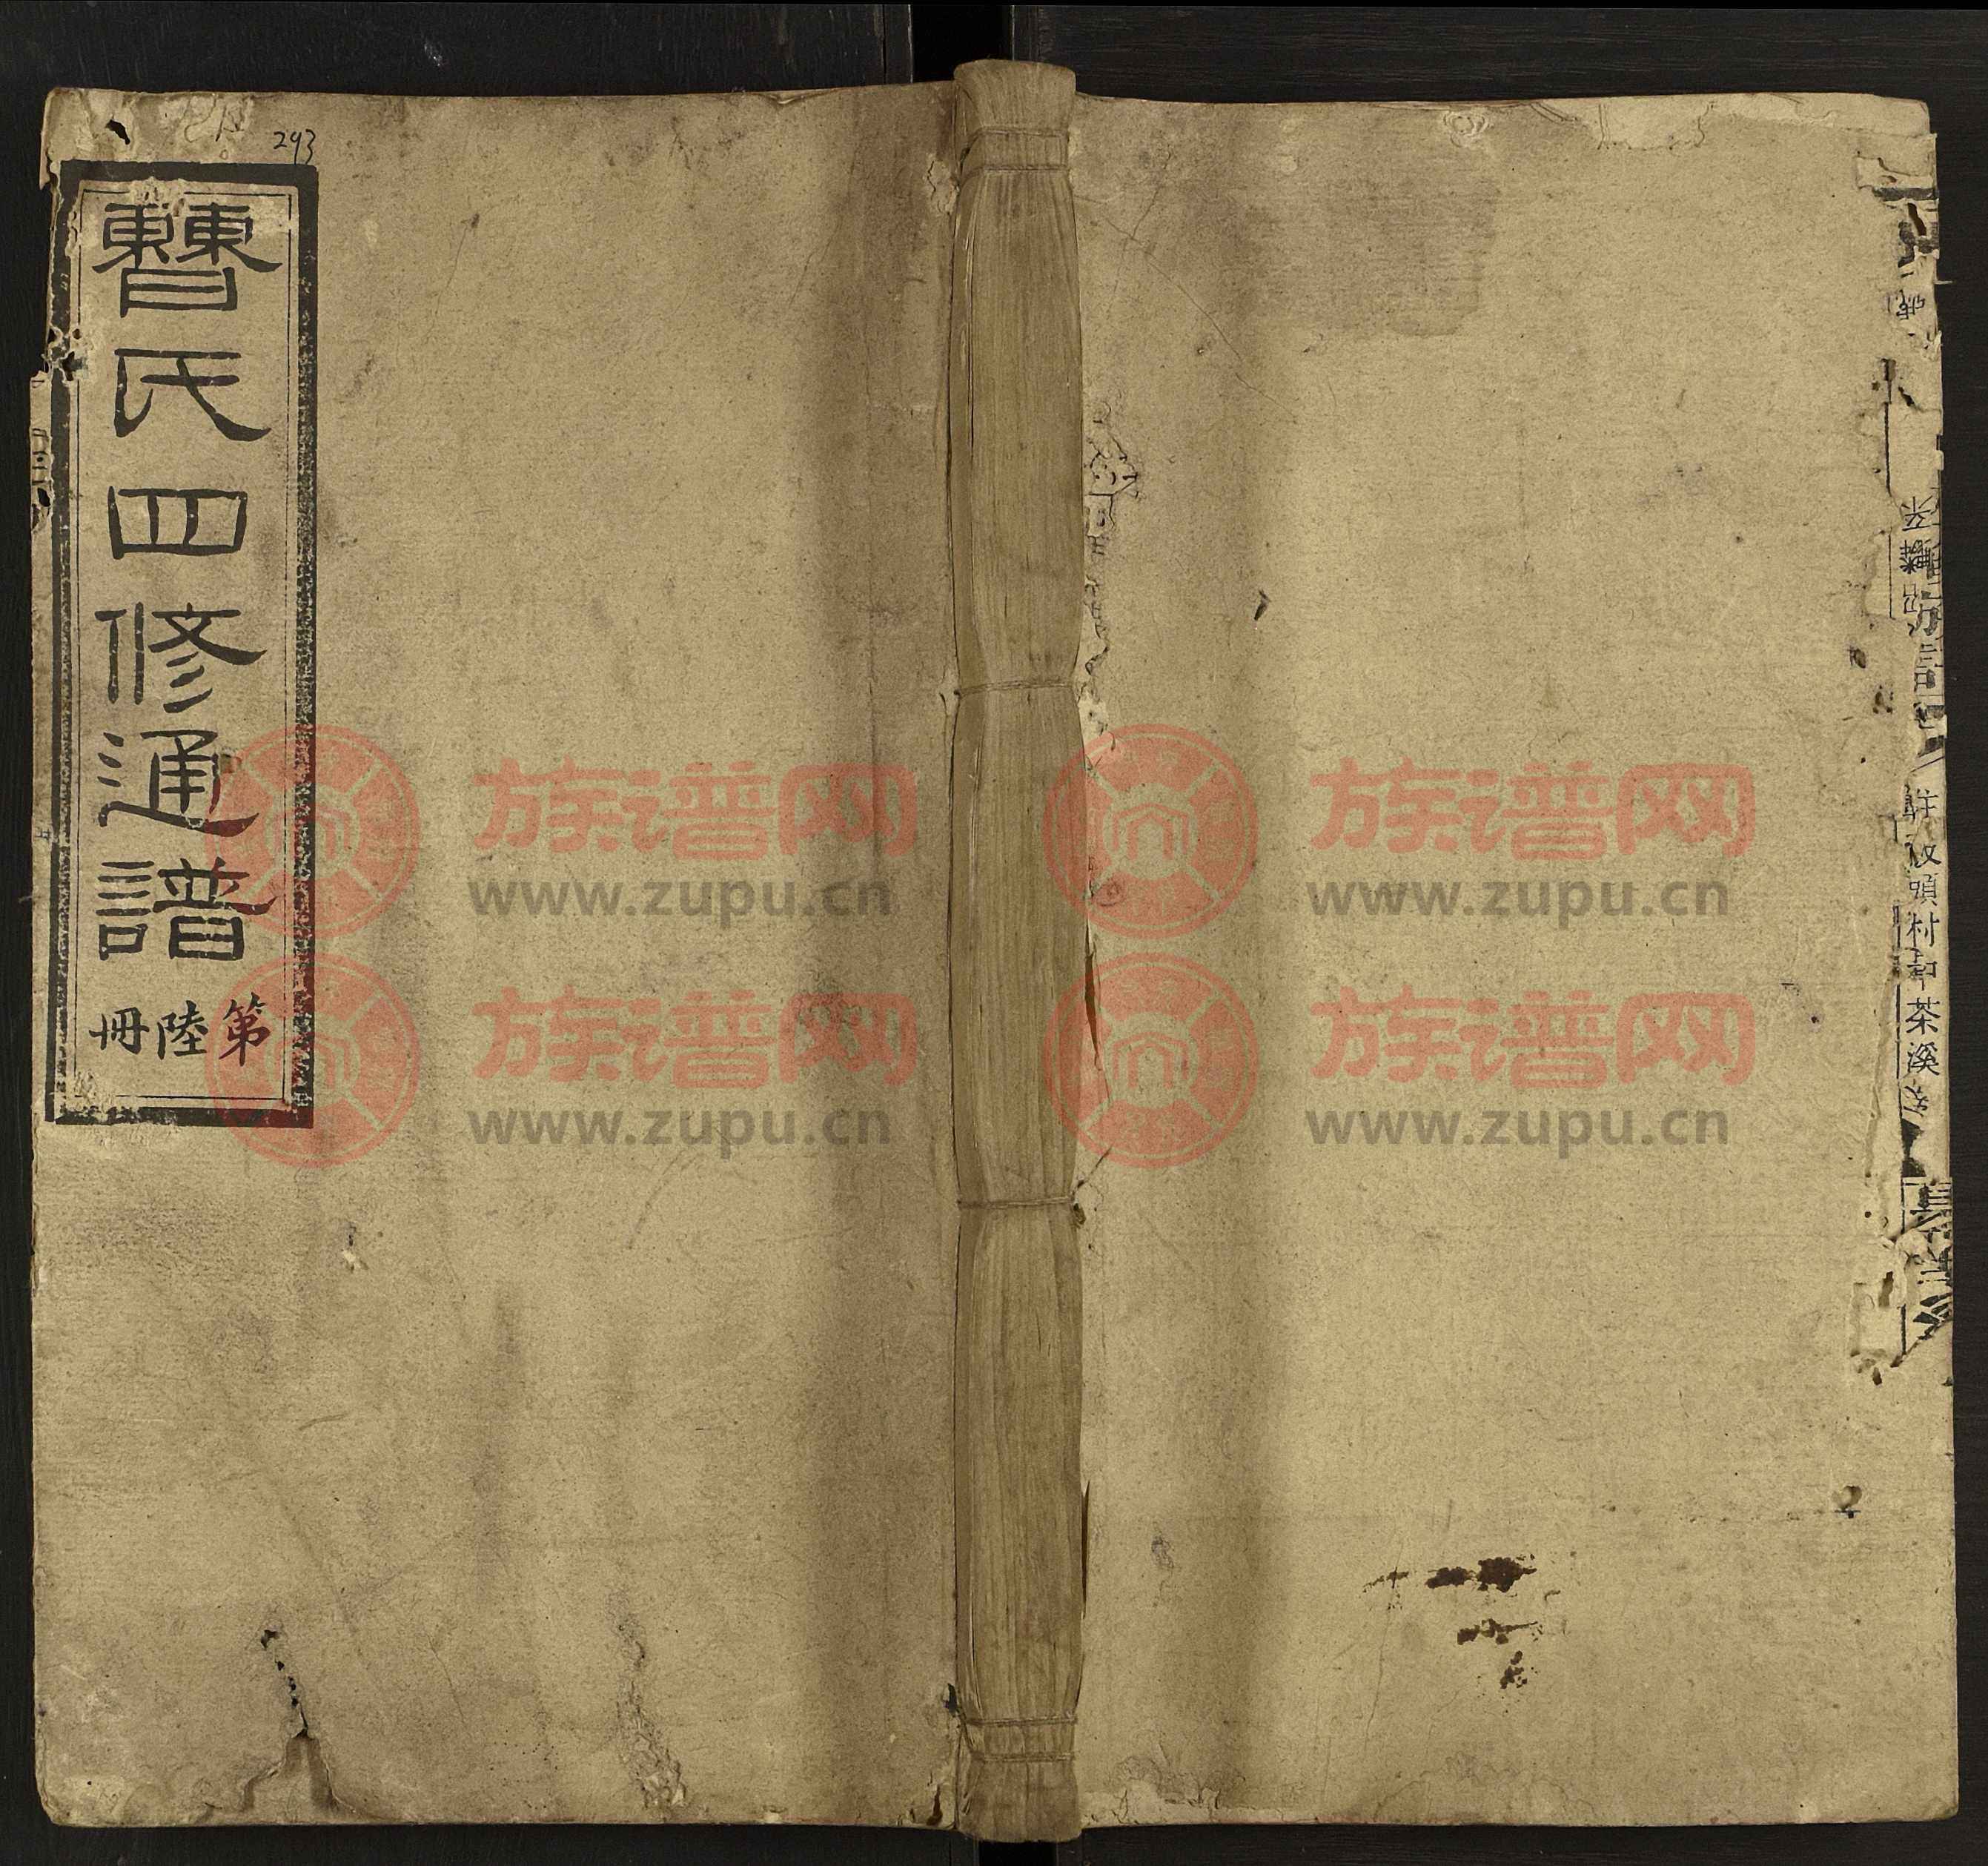 293
曹氏四修通譜
第陸冊
族谱网
www.zupu.cn
族谱网
www.zupu.cn
族谱网
www.zupu.cn
族谱网
www.zupu.cn
頭村
茶溪